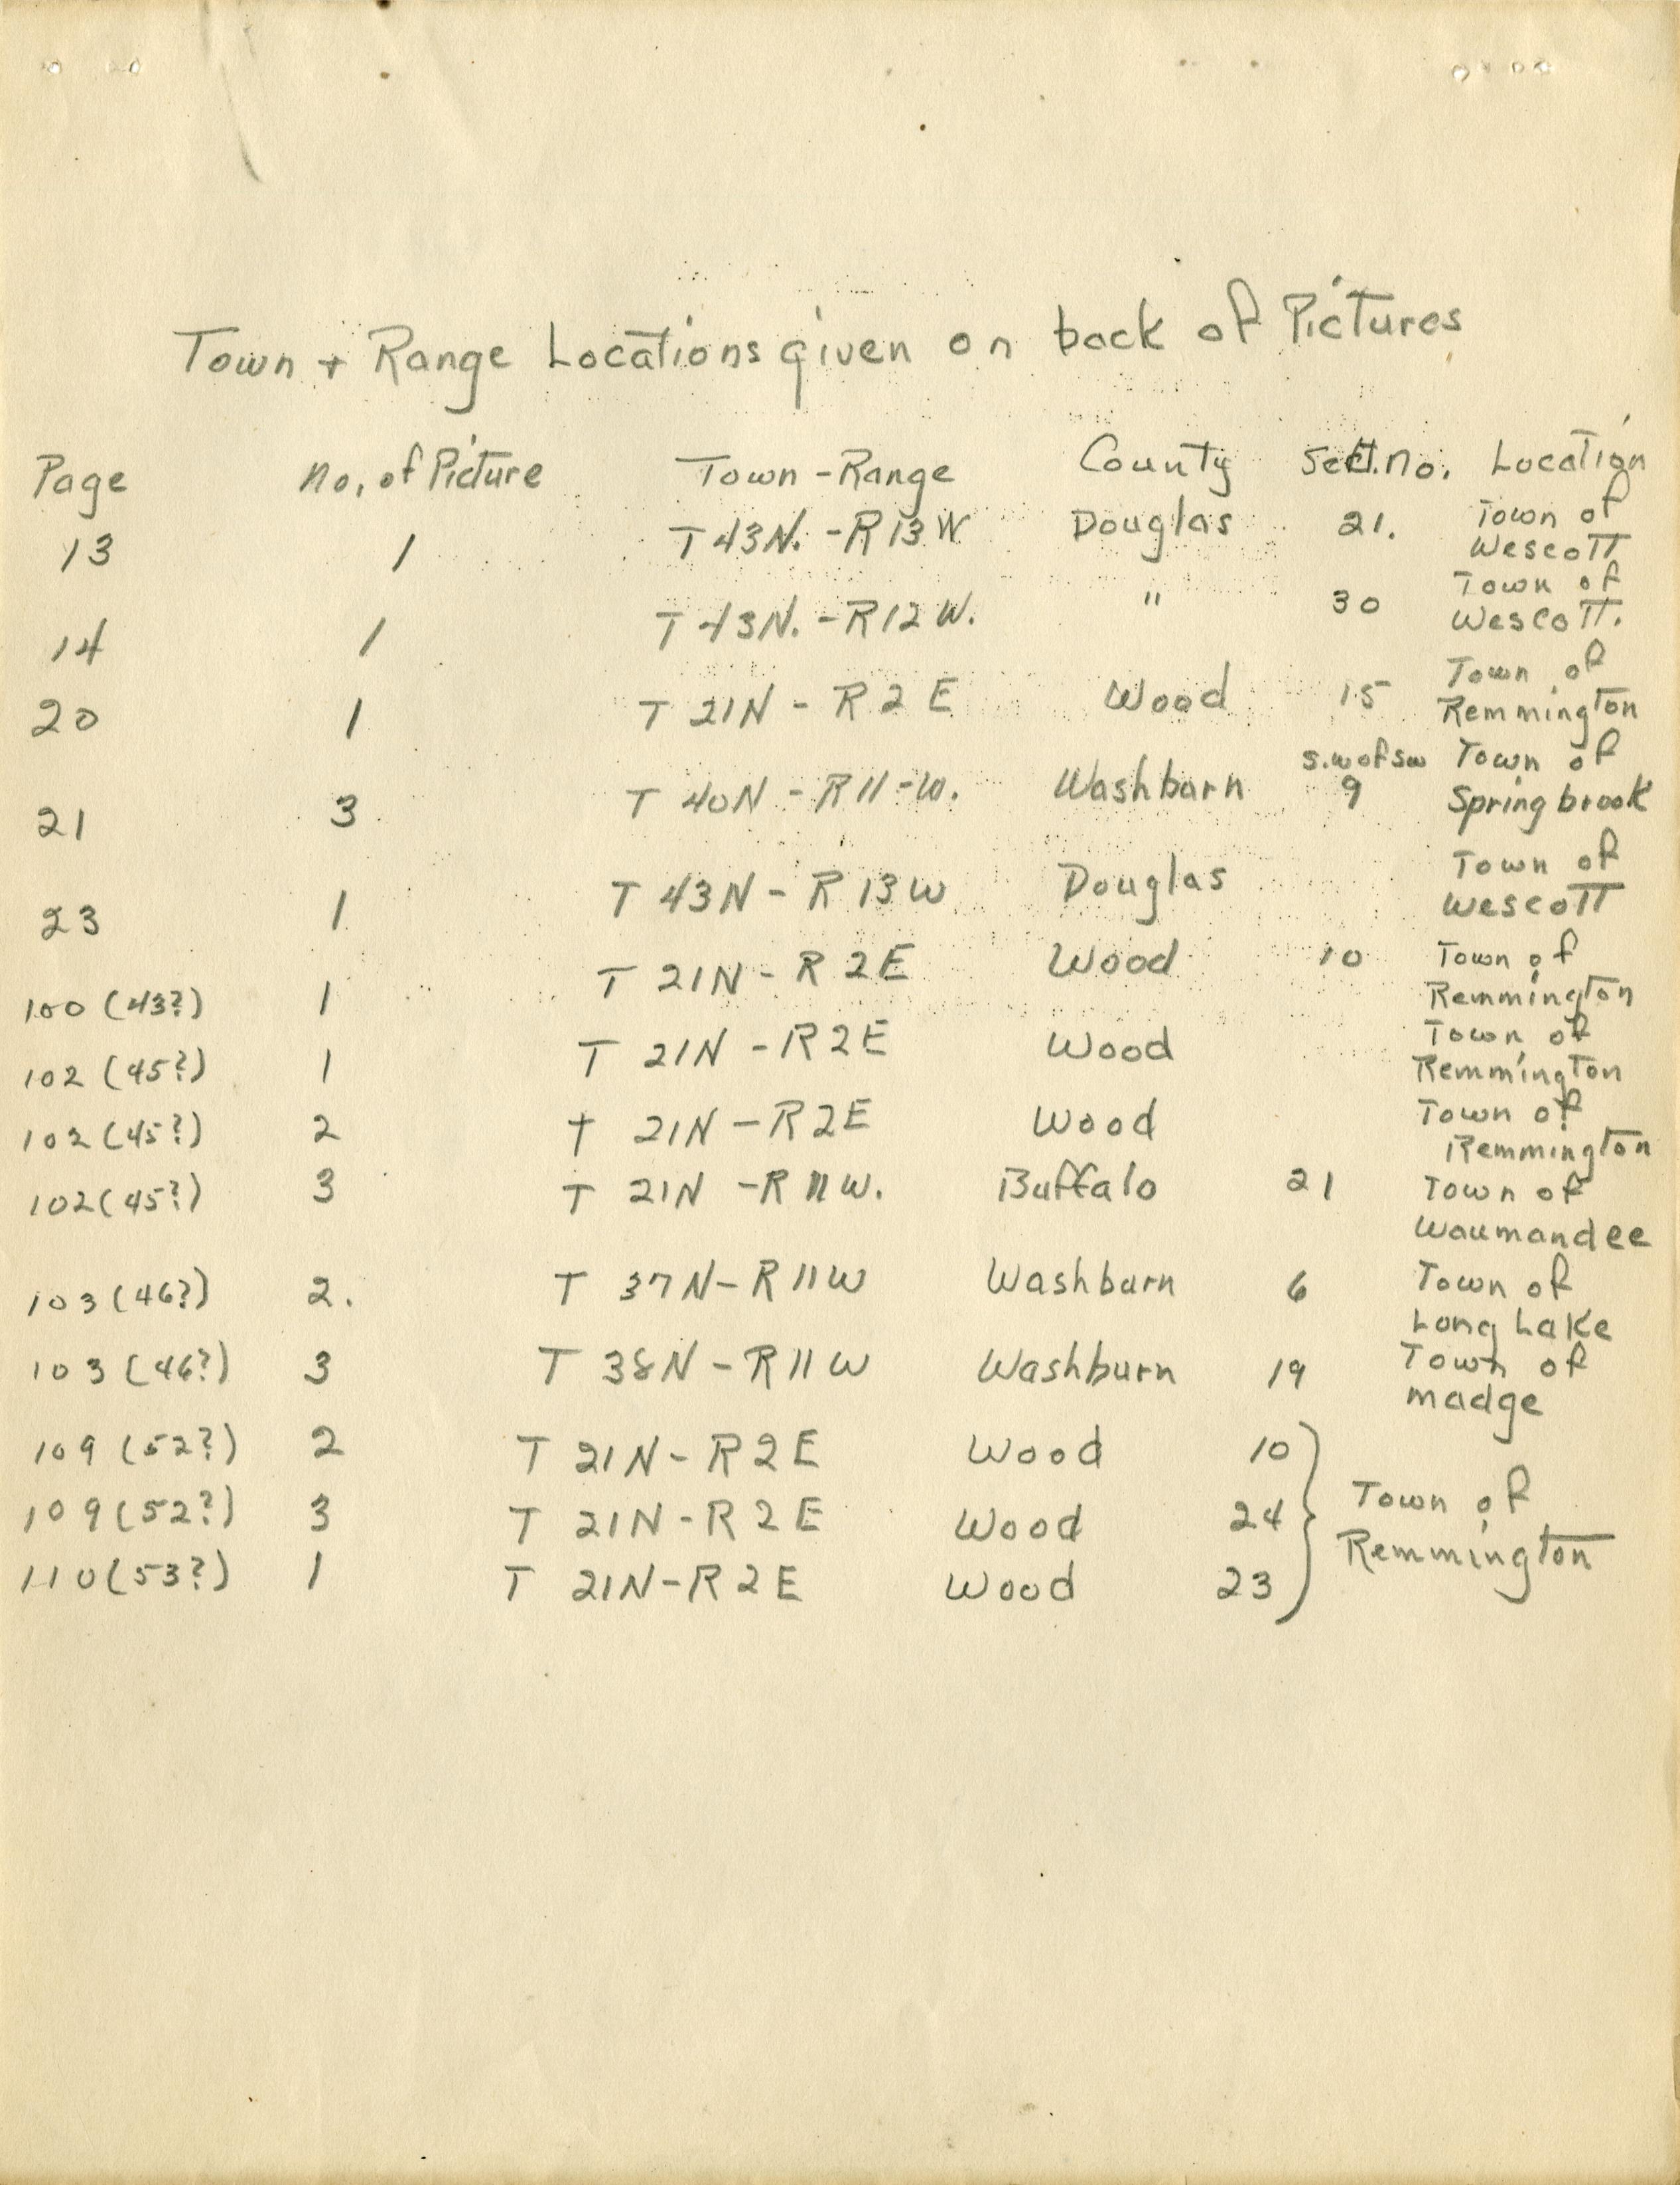 Town + Range Locations given on back of Pictures
Page No. of Picture Town - Range County Sect. No. Location
13 1 T 43N. - R 13 W Douglas 21. Town of
Wescott
14 1 T 43N. - R 12 W. " 30 Town of
Wescott.
20 1 T 21N - R 2 E Wood 15 Town of
Remmington
21 3 T 40N - R 11 - W. Washburn s.w of sw 9 Town of
Springbrook
23 1 T 43N - R 13 W Douglas Town of
Wescott
100 (43?) 1 T 21N - R 2 E Wood 10 Town of
Remmington
102 (45?) 1 T 21N - R 2 E Wood Town of
Remmington
102 (45?) 2 T 21N - R 2 E Wood Town of
Remmington
102 (45?) 3 T 21N - R 11 W. Buffalo 21 Town of
Waumandee
103 (46?) 2. T 37N - R 11 W Washburn 6 Town of
Long Lake
103 (46?) 3 T 38N - R 11 W Washburn 19 Town of
Madge
109 (52?) 2 T 21N - R 2 E Wood 10
109 (52?) 3 T 21N - R 2 E Wood 24 Town of
110 (53?) 1 T 21N - R 2 E Wood 23 Remmington